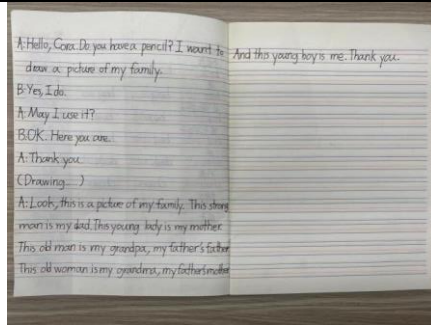 A: Hello, Cora. Do you have a pencil? I want to
draw a picture of my family.
B: Yes, I do.
A: May I use it?
B: OK. Here you are.
A: Thank you.
(Drawing...)
A: Look, this is a picture of my family. This strong
man is my dad. This young lady is my mother.
This old man is my grandpa, my father's father
This old woman is my grandma, my father's mother
And this young boy is me. Thank you.